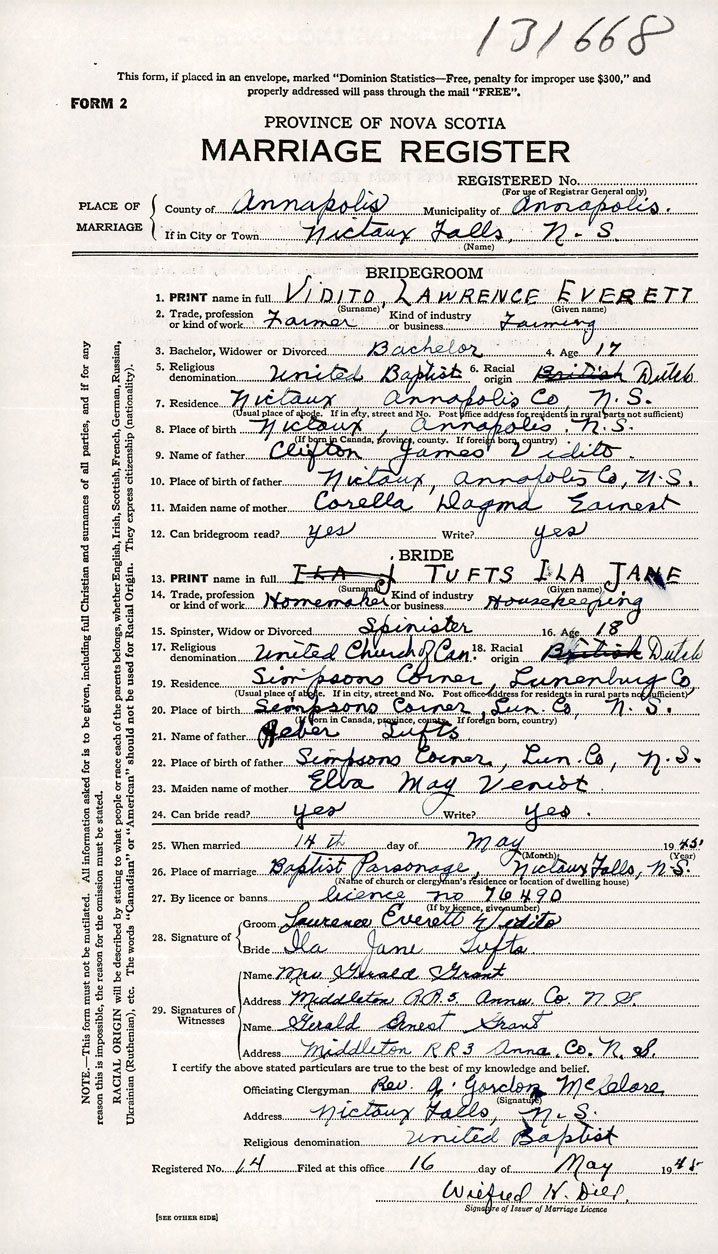 131668
This form, if placed in an envelope, marked "Dominion Statistics—Free, penalty for improper use $300," and
properly addressed will pass through the mail "FREE".
FORM 2
PROVINCE OF NOVA SCOTIA
MARRIAGE REGISTER
REGISTERED No.
(For use of Registrar General only)
PLACE OF MARRIAGE
County of Annapolis Municipality of Annapolis.
If in City or Town Nictaux Falls, N-S.
(Name)
BRIDEGROOM
1. PRINT name in full VIDITO, LAWRENCE EVERETT
(Surname) (Given name)
2. Trade, profession or kind of work Farmer Kind of industry or business Farming
3. Bachelor, Widower or Divorced Bachelor 4. Age 17
5. Religious denomination United Baptist 6. Racial origin British Dutch
7. Residence Nictaux Annapolis Co, N.S.
(Usual place of abode. If in city, street and No. Post office address for residents in rural parts not sufficient)
8. Place of birth Nictaux, Annapolis. N.S.
(If born in Canada, province, county. If foreign born, country)
9. Name of father Clifton James Vidito
10. Place of birth of father Nictaux, Annapolis Co, N.S.
11. Maiden name of mother Corella Dagma Earnest
12. Can bridegroom read? yes Write? yes
BRIDE
13. PRINT name in full ILA J TUFTS ILA JANE
(Surname) (Given name)
14. Trade, profession or kind of work Homemaker Kind of industry or business Housekeeping
15. Spinster, Widow or Divorced Spinister 16. Age 18
17. Religious denomination United Church of Can. 18. Racial origin British Dutch
19. Residence Simpsons Corner, Lunenburg Co,
(Usual place of abode. If in city, street and No. Post office address for residents in rural parts not sufficient)
20. Place of birth Simpsons Corner, Lun. Co, N.S.
(If born in Canada, province, county. If foreign born, country)
21. Name of father Heber Tufts
22. Place of birth of father Simpsons Corner, Lun. Co, N.S.
23. Maiden name of mother Elva May Veniot
24. Can bride read? yes Write? yes.
25. When married 14th day of May 1945
(Month) (Year)
26. Place of marriage Baptist Parsonage, Nictaux Falls, N.S.
(Name of church or clergyman's residence or location of dwelling house)
27. By licence or banns licence no 76490
(If by licence, give number)
28. Signature of
Groom Lawrence Everett Vidito
Bride Ila Jane Tufts
29. Signatures of Witnesses
Name Mrs. Gerald Grant
Address Middleton R.R.5 Anna. Co. N.S.
Name Gerald Ernest Grant
Address Middleton RR3 Anna. Co. N.S.
I certify the above stated particulars are true to the best of my knowledge and belief.
Officiating Clergyman Rev. A. Gordon McClare
(Signature)
Address Nictaux Falls, N-S.
Religious denomination United Baptist
Registered No. 14 Filed at this office 16 day of May 1945
Wilfred H.
Signature of Issuer of Marriage Licence
[SEE OTHER SIDE]
NOTE.—This form must not be mutilated. All information asked for is to be given, including full Christian and surnames of all parties, and if for any
reason this is impossible, the reason for the omission must be stated.
RACIAL ORIGIN will be described by stating to what people or race each of the parents belongs, whether English, Irish, Scottish, French, German, Russian,
Ukrainian (Ruthenian), etc. The words "Canadian" or "American" should not be used for Racial Origin. They express citizenship (nationality).